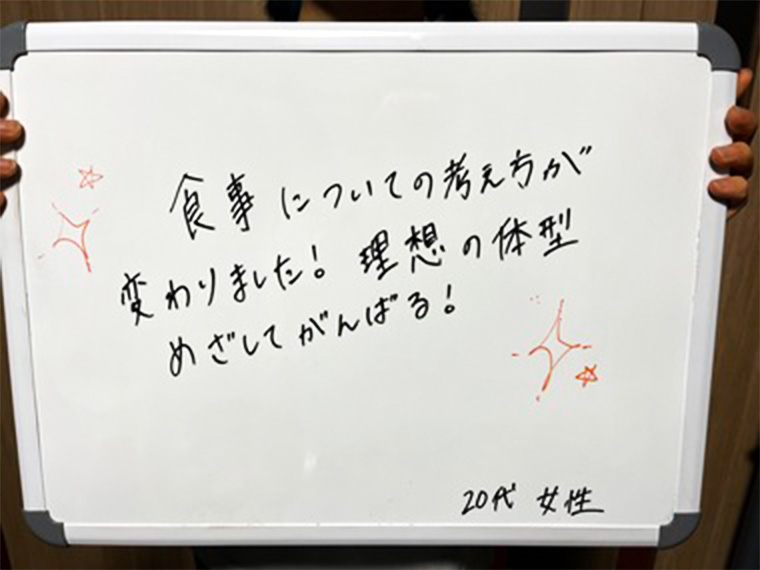 食事についての考え方が
変わりました！理想の体型
めざしてがんばる！
20代 女性